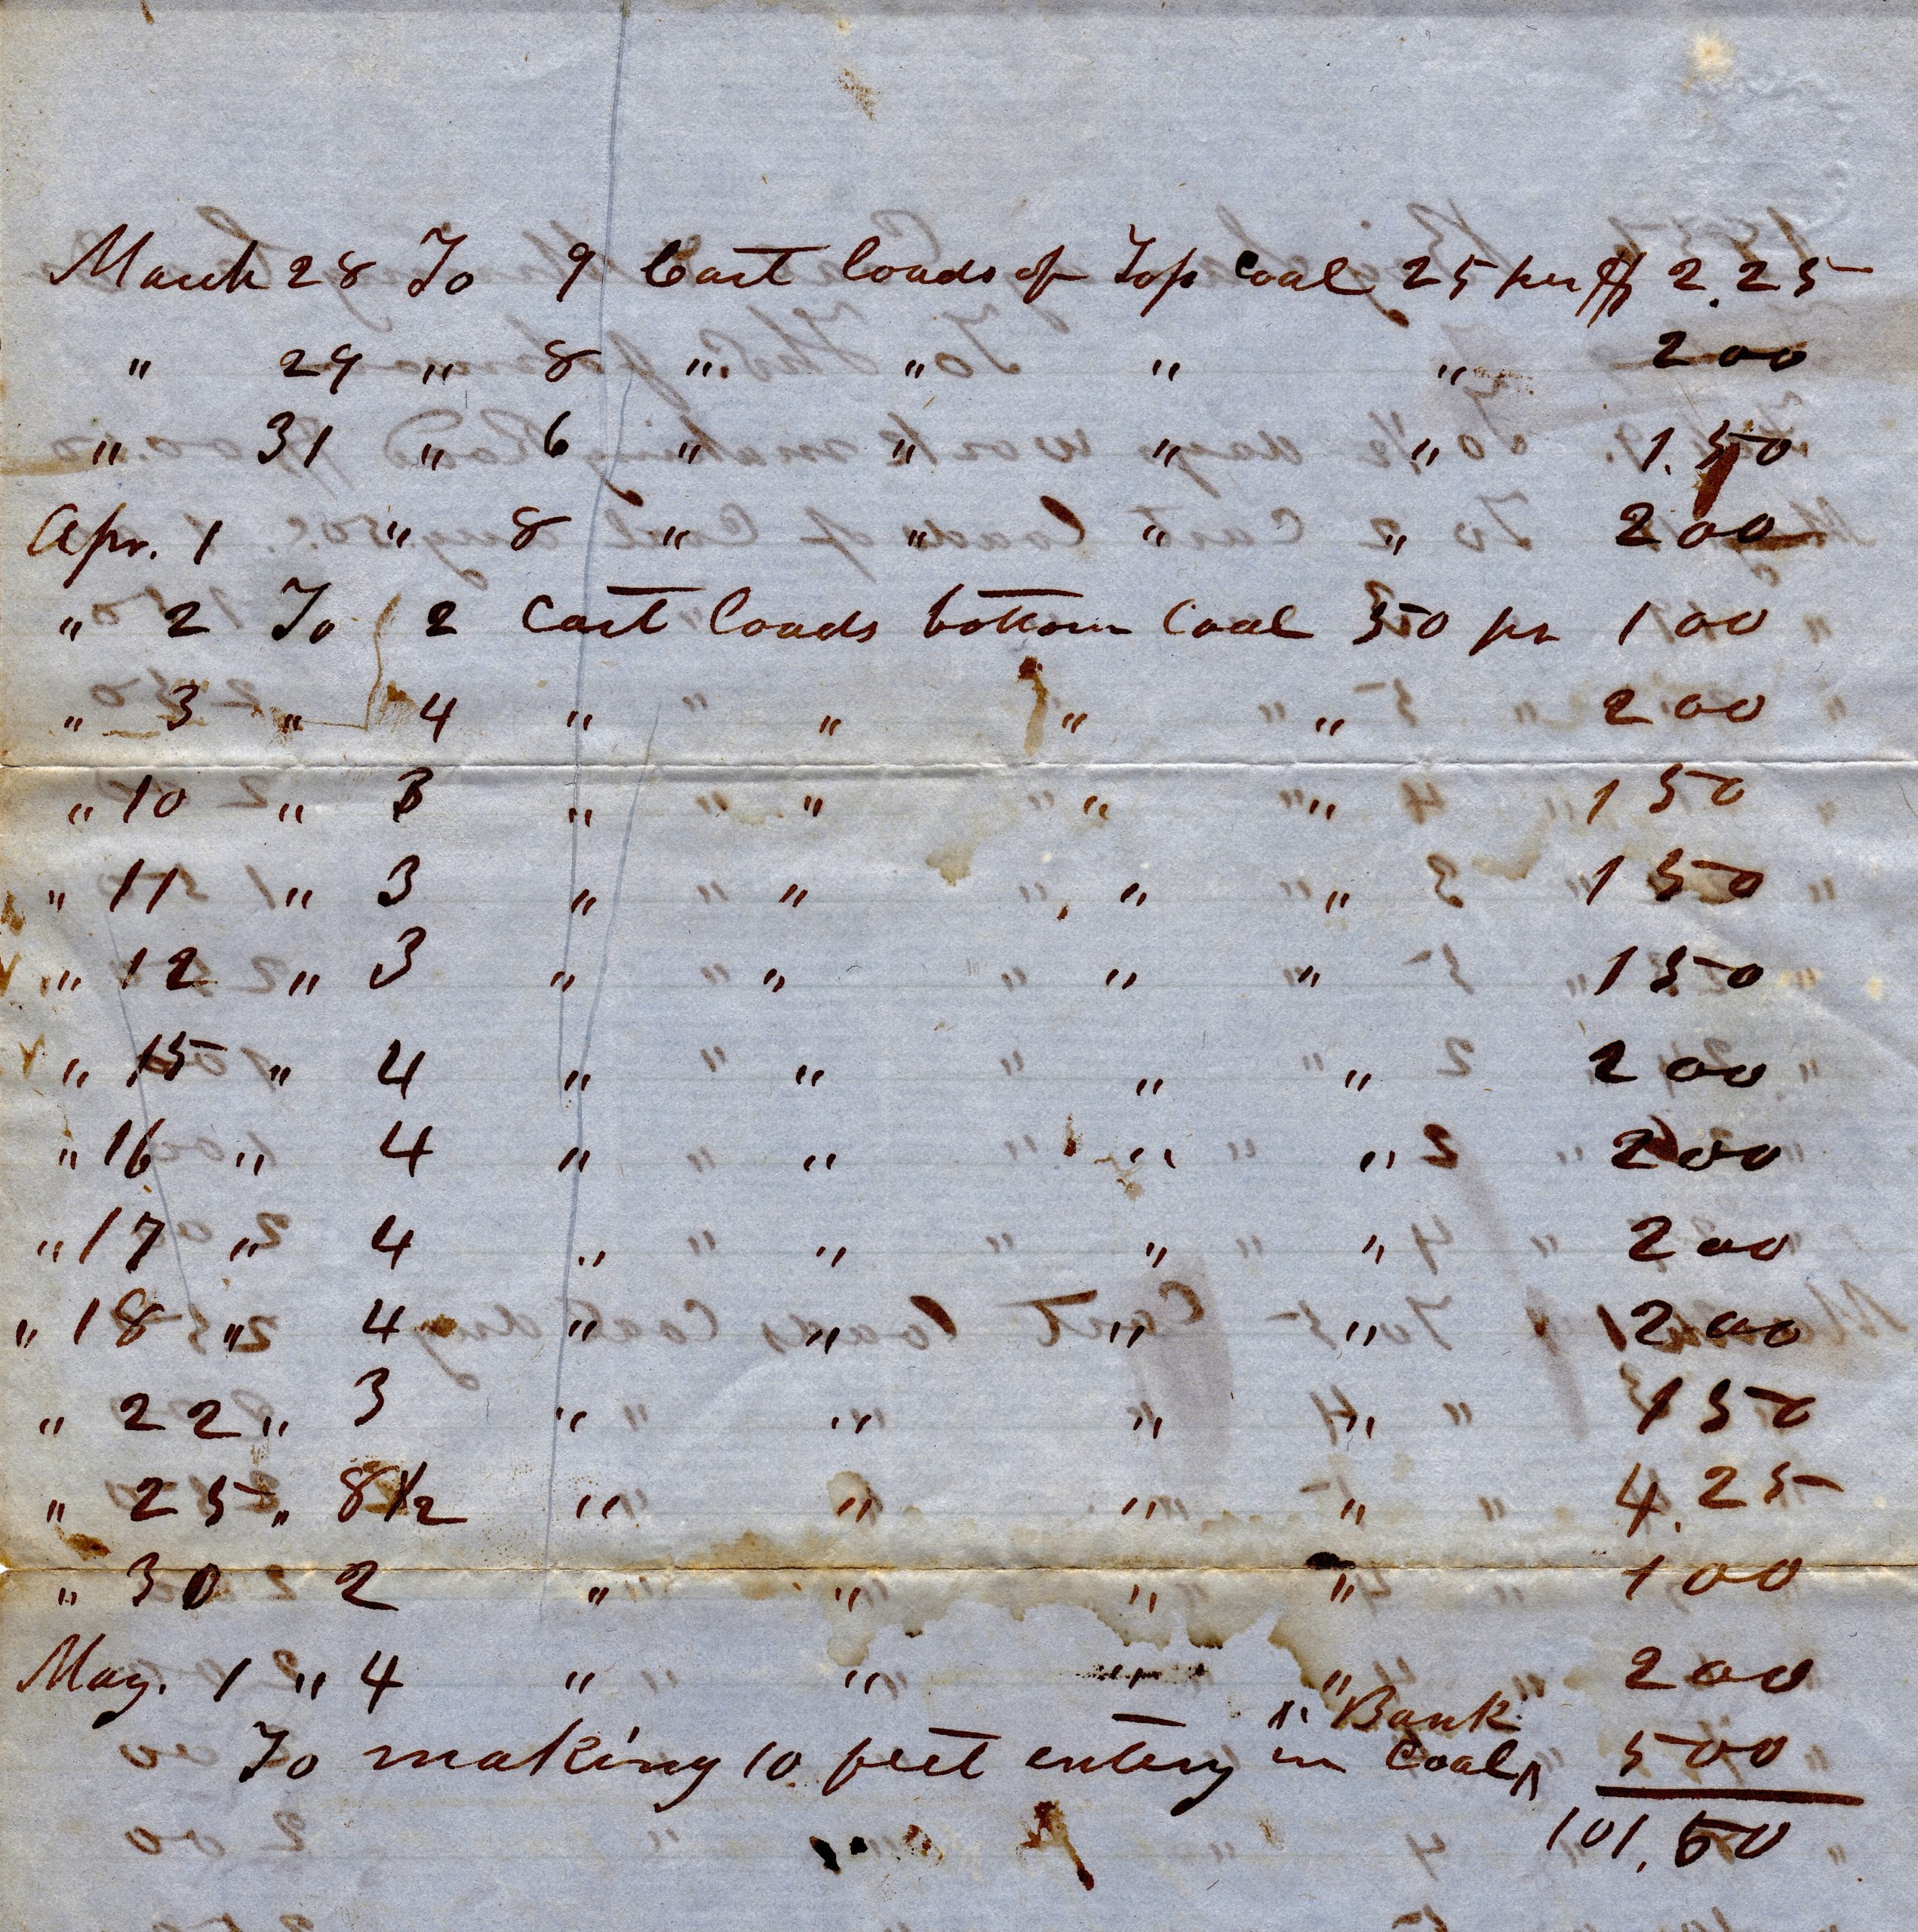 March 28 To 9 Cart loads of Top Coal 25 per $ 2.25
" 29 " 8 " " " " 2 00
" 31 " 6 " " " " 1.50
Apr. 1 " 8 " " " " 2 00
" 2 To 2 Cart loads bottom Coal 50 pr 1 00
" 3 " 4 " " " " 2 00
" 10 " 3 " " " " 1 50
" 11 " 3 " " " " 1 50
" 12 " 3 " " " " 1 50
" 15 " 4 " " " " 2 00
" 16 " 4 " " " " 2 00
" 17 " 4 " " " " 2 00
" 18 " 4 " " " " 2 00
" 22 " 3 " " " " 1 50
" 25 " 8 1/2 " " " " 4.25
" 30 2 " " " " 1 00
May. 1 " 4 " " " 2 00
Bank
To making 10 feet entery in Coal ^ 5 00
101.50